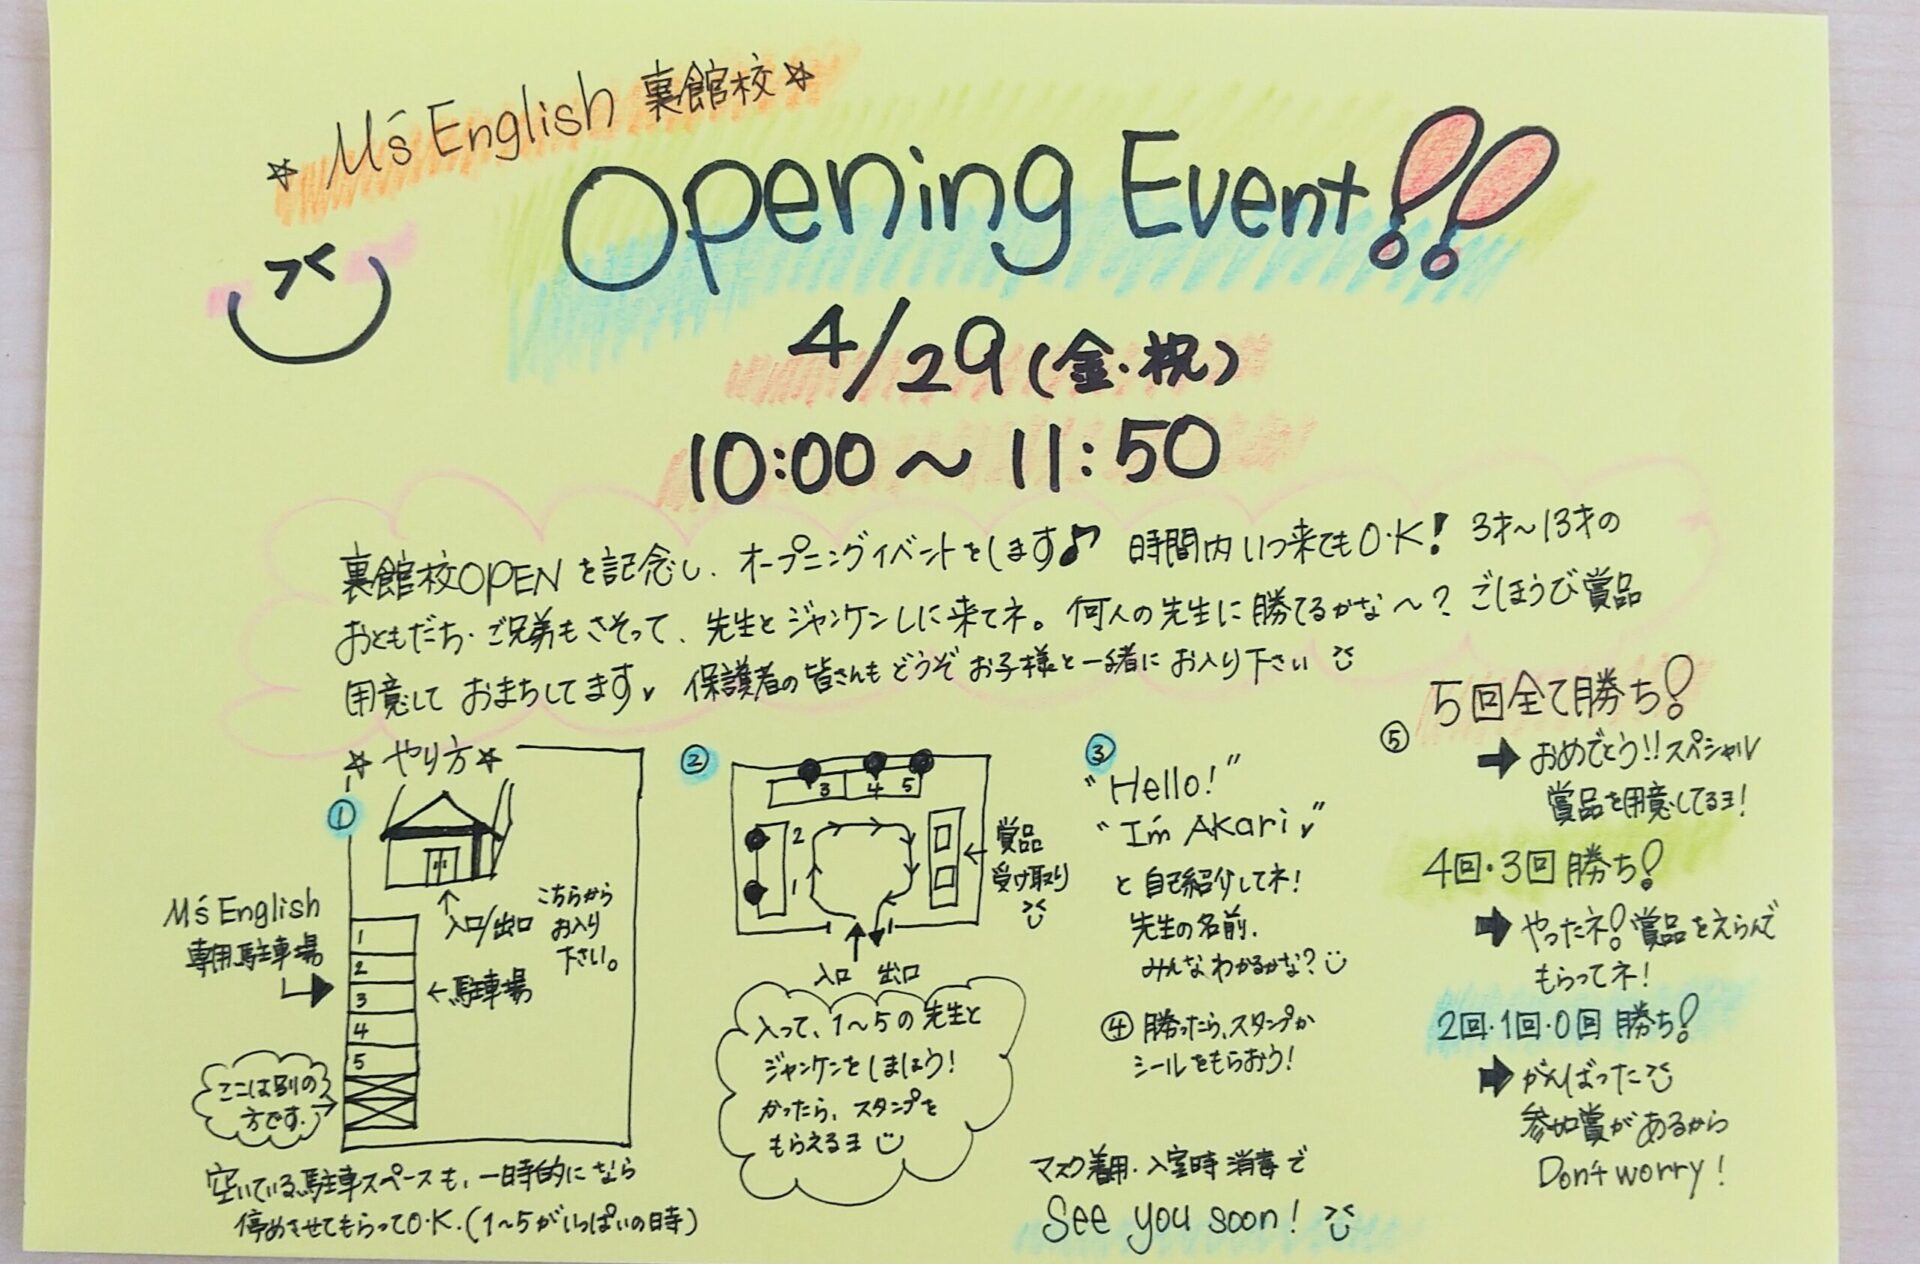 ☆ M's English 裏館校 ☆
Opening Event!!
4/29(金・祝)
10:00〜11:50
裏館校OPENを記念し、オープニングイベントをします♪ 時間内いつ来てもO.K! 3才〜13才の
おともだち・ご兄弟もさそって、先生とジャンケンしに来てネ。何人の先生に勝てるかな〜?ごほうび賞品
用意しておまちしてます♥ 保護者の皆さんもどうぞお子様と一緒にお入り下さい
☆やり方☆
①
入口/出口
こちらから
お入り
下さい。
M's English
専用駐車場
1
2
3
4
5
←駐車場
ここは別の
方です。
空いている駐車スペースも、一時的になら
停めさせてもらってO.K.(1〜5がいっぱいの時)
②
3 4 5
2
1
賞品
受け取り
入口 出口
入って、1〜5の先生と
ジャンケンをしましょう!
かったら、スタンプを
もらえるヨ
③
"Hello!"
"I'm Akari♥"
と自己紹介してネ!
先生の名前、
みんなわかるかな?
④勝ったら、スタンプか
シールをもらおう!
マスク着用・入室時消毒で
See you soon!
⑤
5回全て勝ち!
➡おめでとう!!スペシャル
賞品を用意してるヨ!
4回・3回勝ち!
➡やったネ!賞品をえらんで
もらってネ!
2回・1回・0回勝ち!
➡がんばった
参加賞があるから
Don't worry!